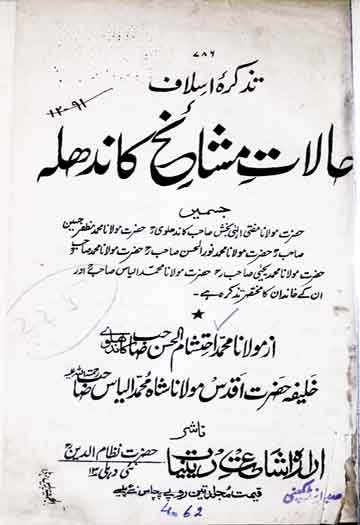 ۷۸۶
تذکرۂ اسلاف
حالاتِ مشائخ کاندھلہ
جسمیں
حضرت مولانا مفتی الٰہی بخش صاحب کاندھلوی رحؒ حضرت مولانا محمد مظفر حسین
صاحب رحؒ حضرت مولانا محمد نور الحسن صاحب رحؒ حضرت مولانا محمد صاحب رحؒ
حضرت مولانا محمد یحییٰ صاحب رحؒ حضرت مولانا محمد الیاس صاحب رحؒ اور
ان کے خاندان کا مختصر تذکرہ ہے۔
از مولانا محمد احتشام الحسن صاحب کاندھلوی
خلیفہ حضرت اقدس مولانا شاہ محمد الیاس صاحب رحمۃ اللہ علیہ
ناشر
ادارہ اشاعت دینیات حضرت نظام الدینؒ
نئی دہلی ۱۳
قیمت مجلد تین روپے پچاس پیسے
4.62